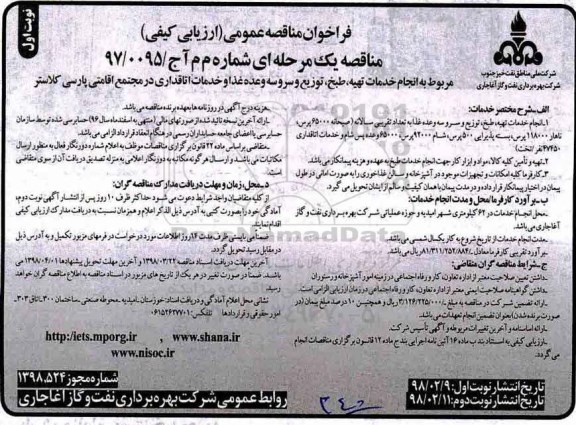 نوبت اول
فراخوان مناقصه عمومی (ارزیابی کیفی)
مناقصه یک مرحله ای شماره م م آج/۹۷/۰۰۹۵
مربوط به انجام خدمات تهیه، طبخ، توزیع و سرو سه وعده غذا و خدمات اتاقداری در مجتمع اقامتی پارسی کلاستر
شرکت ملی مناطق نفت خیز جنوب
شرکت بهره برداری نفت و گاز آغاجاری
الف ـ شرح مختصر خدمات:
۱ـ انجام خدمات تهیه، طبخ، توزیع و سرو سه وعده غذا به تعداد تقریبی سالانه (صبحانه ۶۵۰۰۰ پرس،
ناهار ۱۱۸۰۰۰ پرس، بسته پذیرایی ۵۰۰ پرس، شام ۹۲۰۰۰ پرس، ۶۵۰۰۰ وعده پس شام و خدمات اتاقداری
۲ـ تهیه و تأمین کلیه کالا، مواد و ابزار کار جهت انجام خدمات طبخ به عهده و هزینه پیمانکار می باشد.
۳ـ کارفرما کلیه امکانات و تجهیزات موجود در آشپزخانه و سالن غذاخوری را به صورت امانی در طول
پیمان در اختیار پیمانکار قرارداده و در مدت پیمان باهمان کیفیت و سالم از ایشان تحویل می گیرد.
ب ـ برآورد کارفرما/محل و مدت انجام خدمات:
محل انجام خدمات در ۶۲ کیلومتری شهر امیدیه و حوزه عملیاتی شرکت بهره برداری نفت و گاز
آغاجاری می باشد.
ـ مدت انجام خدمات از تاریخ شروع به کار یکسال شمسی می باشد.
ج ـ شرایط مناقصه گران متقاضی:
ـ داشتن تعیین صلاحیت معتبر از اداره تعاون، کار و رفاه اجتماعی در زمینه امور آشپزخانه و رستوران
ـ داشتن گواهینامه صلاحیت ایمنی معتبر از اداره تعاون، کار و رفاه اجتماعی در زمان ارزیابی الزامی است.
ـ ارائه تضمین شرکت در مناقصه به مبلغ ۳/۱۲۶/۲۲۵/۰۰۰ ریال و همچنین ۱۰ درصد مبلغ پیمان (در
صورت برنده شدن) بعنوان تضمین انجام تعهدات می باشد.
ـ ارائه اساسنامه و آخرین تغییرات مربوطه و آگهی تأسیس شرکت.
ـ ارزیابی کیفی به استناد بند ب ماده ۱۶ آئین نامه اجرایی بند ج ماده ۱۲ قانون برگزاری مناقصات انجام
می گردد.
ـ هزینه درج آگهی در روزنامه ها بعهده برنده مناقصه می باشد.
ـ ارائه آخرین نسخه تائید شده از صورتهای مالی (منتهی به اسفندماه سال ۹۶) حسابرسی شده توسط سازمان
حسابرسی یا اعضای جامعه حسابداران رسمی در هنگام انعقاد قرارداد الزامی می باشد.
د ـ محل، زمان و مهلت دریافت مدارک مناقصه گران:
ـ کلیه متقاضیان واجد شرایط دعوت می شود حداکثر ظرف ۱۰ روز پس از انتشار آگهی نوبت دوم،
آمادگی خود را بصورت کتبی به آدرس ذیل الذکر اعلام و همزمان نسبت به دریافت مدارک ارزیابی کیفی
اقدام نمایند.
نشانی محل اعلام آمادگی و دریافت اسناد: خوزستان، امیدیه، محوطه صنعتی، ساختمان ۳۰۰، اتاق ۳۰۳،
http:/iets.mporg.ir , www.shana.ir
www.nisoc.ir
شماره مجوز ۱۳۹۸.۵۲۴
روابط عمومی شرکت بهره برداری نفت و گاز آغاجاری
تاریخ انتشار نوبت اول: ۹۸/۰۲/۹
تاریخ انتشار نوبت دوم: ۹۸/۰۲/۱۱